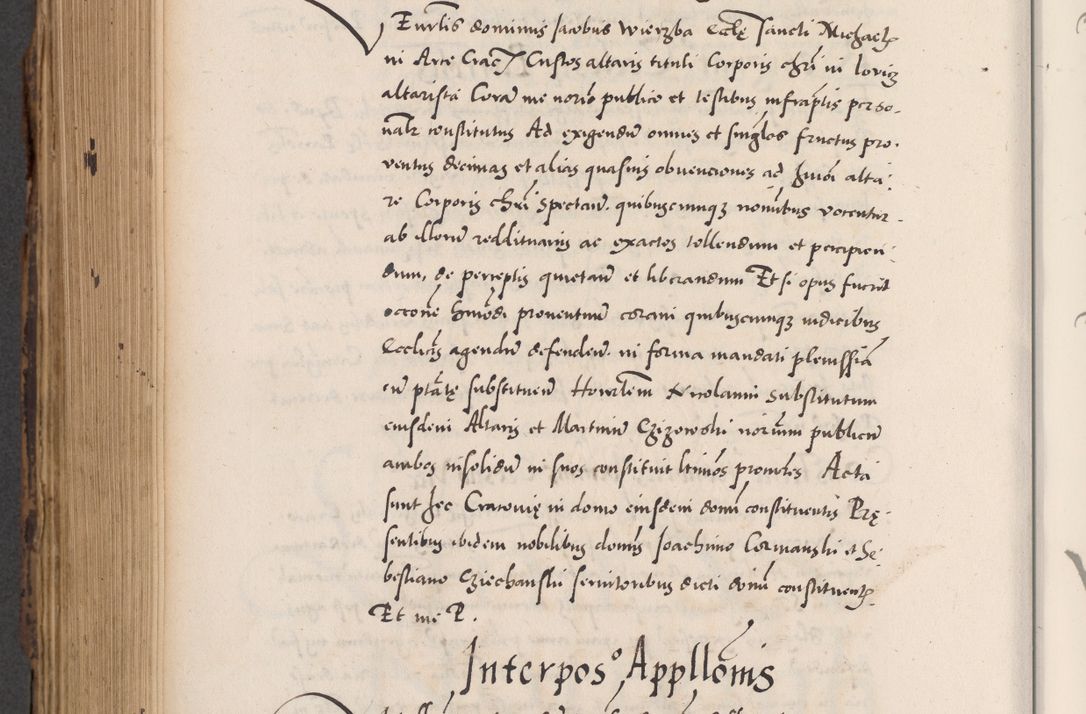 Eurlis dominus Jacobus Wierzba Ecclę sancti Michaelꝭ
in Arce Crac Custos altaris tituli Corporis chri in loricꝭ
altarista Corā me notrio publico et testibus infraptis perso-
nalr constitutus Ad exigendū omnes et singlos fructus pro-
ventus decimas et alias quasuis obvenciones ad huiōi alta-
re Corporis chri spectan̄. quibuscunqꝫ nominibus vocentur
ab illorū reddituariis ac exactos tollendum et percipien-
dum, de perceptis quietan̄ et liberandum Et si opus fuerit
occōne hmōdi proventuū coram quibuscunqꝫ iudicibus
Eccliis agendū defendēn. in forma mandati plenissīa
cū ptāte substituen̄ Honrlem Nicolaum Substitutum
eiusdem Altaris et Martinū Czizowski notrium publicū
ambos insolidū in suos constituit ltimos procutores Acta
sunt hec Cracovię in domo eiusdem domi constituentis Prę-
sentibus ibidem nobilibus domis Joachimo Cormanski et Se-
bestiano Cziechanski servitoribus dicti domi constituentꝭ
Et me P.
Interpos° Appllōnis